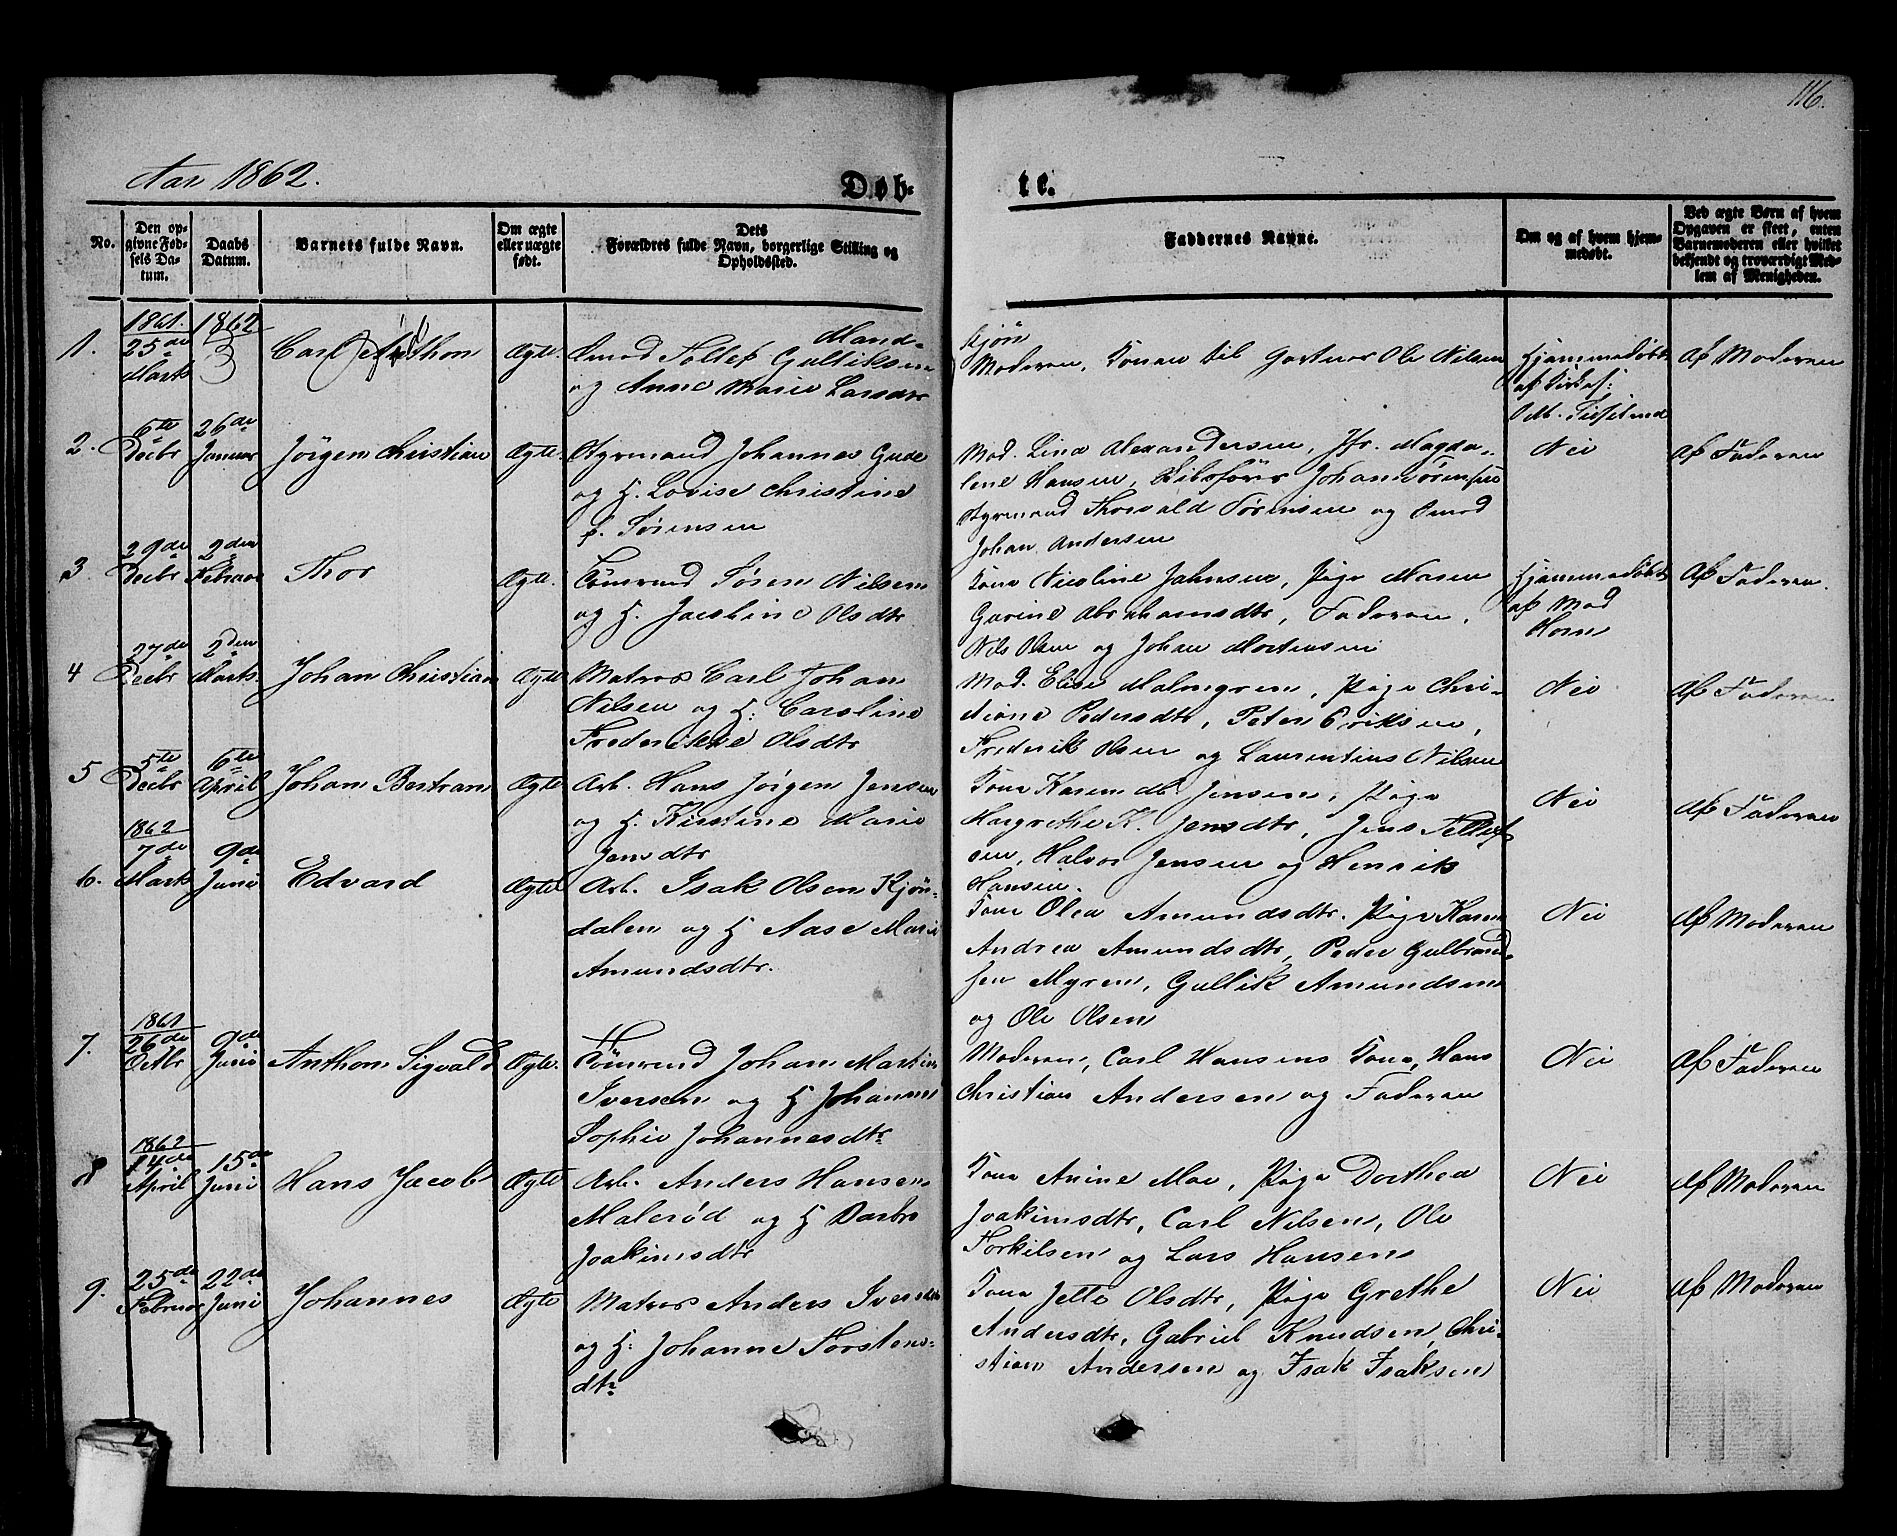 116.
Aar 1862.
Døb-
te.
No.
Den op-
givne Fød-
sels Da-
tum.
Daabs
Datum.
Barnets fulde Navn.
Om ægte
eller uægte
født.
Dets
Forældres fulde Navn, borgerlige Stilling og
Opholdssted.
Faddernes Navne.
Om og af hvem hjem-
medøbt.
Ved ægte Børn af hvem
Opgaven er skeet, enten
Barnemoderen eller hvilket
bekjendt og troværdigt Med-
lem af Menigheden.
1.
1861.
25de
Marts
1862
3
Carl Anthon
Ægte.
Smed Tollef Gulliksen
og Anne Marie Larsdtr
Moderen, Konen til Gartner Ole Nilsen
Hjemmedøbt
af
Af Moderen
2.
6te
Decbr
26de
Januar
Jörgen Christian
Ægte.
Styrmand Johannes Gude
og H. Lovise Christine
f. Sörensen
Mad. Lina Alexandersen, Jfr. Magda-
lene Hansen, Skibsförer Johan Sörensen
Styrmand Thorvald Sörensen og Smed
Johan Andersen
Nei
Af Faderen
3
29de
Decbr
2den
Februar
Thor
Ægte.
Tömmrmd Sören Nilsen
og H. Jacobine Olsdtr
Kone Nicoline Jahnsen, Pige Maren
Gurine Abrahamsdtr, Faderen,
Nils Olsen og Johan Mortensen
Hjemmedøbt
af Mad
Horn
Af Faderen.
4
27de
Decbr
2den
Marts.
Johan Christian
Ægte
Matros Carl Johan
Nilsen og H: Caroline
Frederikke Olsdtr
Mad. Elise Malmgren, Pige Chri-
stiane Pedersdtr, Peter Eriksen,
Frederik Olsen og Laurentius Nilsen
Nei
Af Faderen
5
5te
Decbr
6te
April
Johan Bertram
Ægte
Arb. Hans Jörgen Jensen
og H. Kirstine Marie
Jensdtr
Kone Karen M. Jensen, Pige
Margrethe K. Jensdtr, Jens Tellef
sen, Halvor Jensen og Henrik
Hansen.
Nei
Af Faderen
6.
1862
7de
Marts
9de
Juni
Edvard
Ægte
Arb. Isak Olsen Kjön-
dalen og H Aase Marie
Amundsdtr.
Kone Olea Amundsdtr. Pige Karen
Andrea Amundsdtr, Peder Gulbrand-
sen Myren, Gullik Amundsen
og Ole Olsen
Nei
Af Moderen
7.
1861
26de
Octbr
9de
Juni
Anthon Sigvald
Ægte.
Tömmrmd Johan Martin
Iversen og H Johanne
Sophie Johannesdtr
Moderen, Carl Hansens Kone, Hans
Christian Andersen og Faderen
Nei
Af Faderen
8
1862
14de
April
15de
Juni
Hans Jacob
Ægte
Arb. Anders Hansen
Malerød og H Barbro
Joakimsdtr
Kone Anine Moe, Pige Dorthea
Joakimsdtr, Carl Nilsen, Ole
Torkilsen og Lars Hansen
Nei
Af Moderen
9.
25de
Februar
22de
Juni
Johannes
Ægte
Matros Anders Iversen
og H: Johanne Torstens-
dtr
Kone Jette Olsdtr, Pige Grethe
Andersdtr, Gabriel Knudsen, Chri-
stian Andersen og Isak Isaksen
Nei
Af Moderen